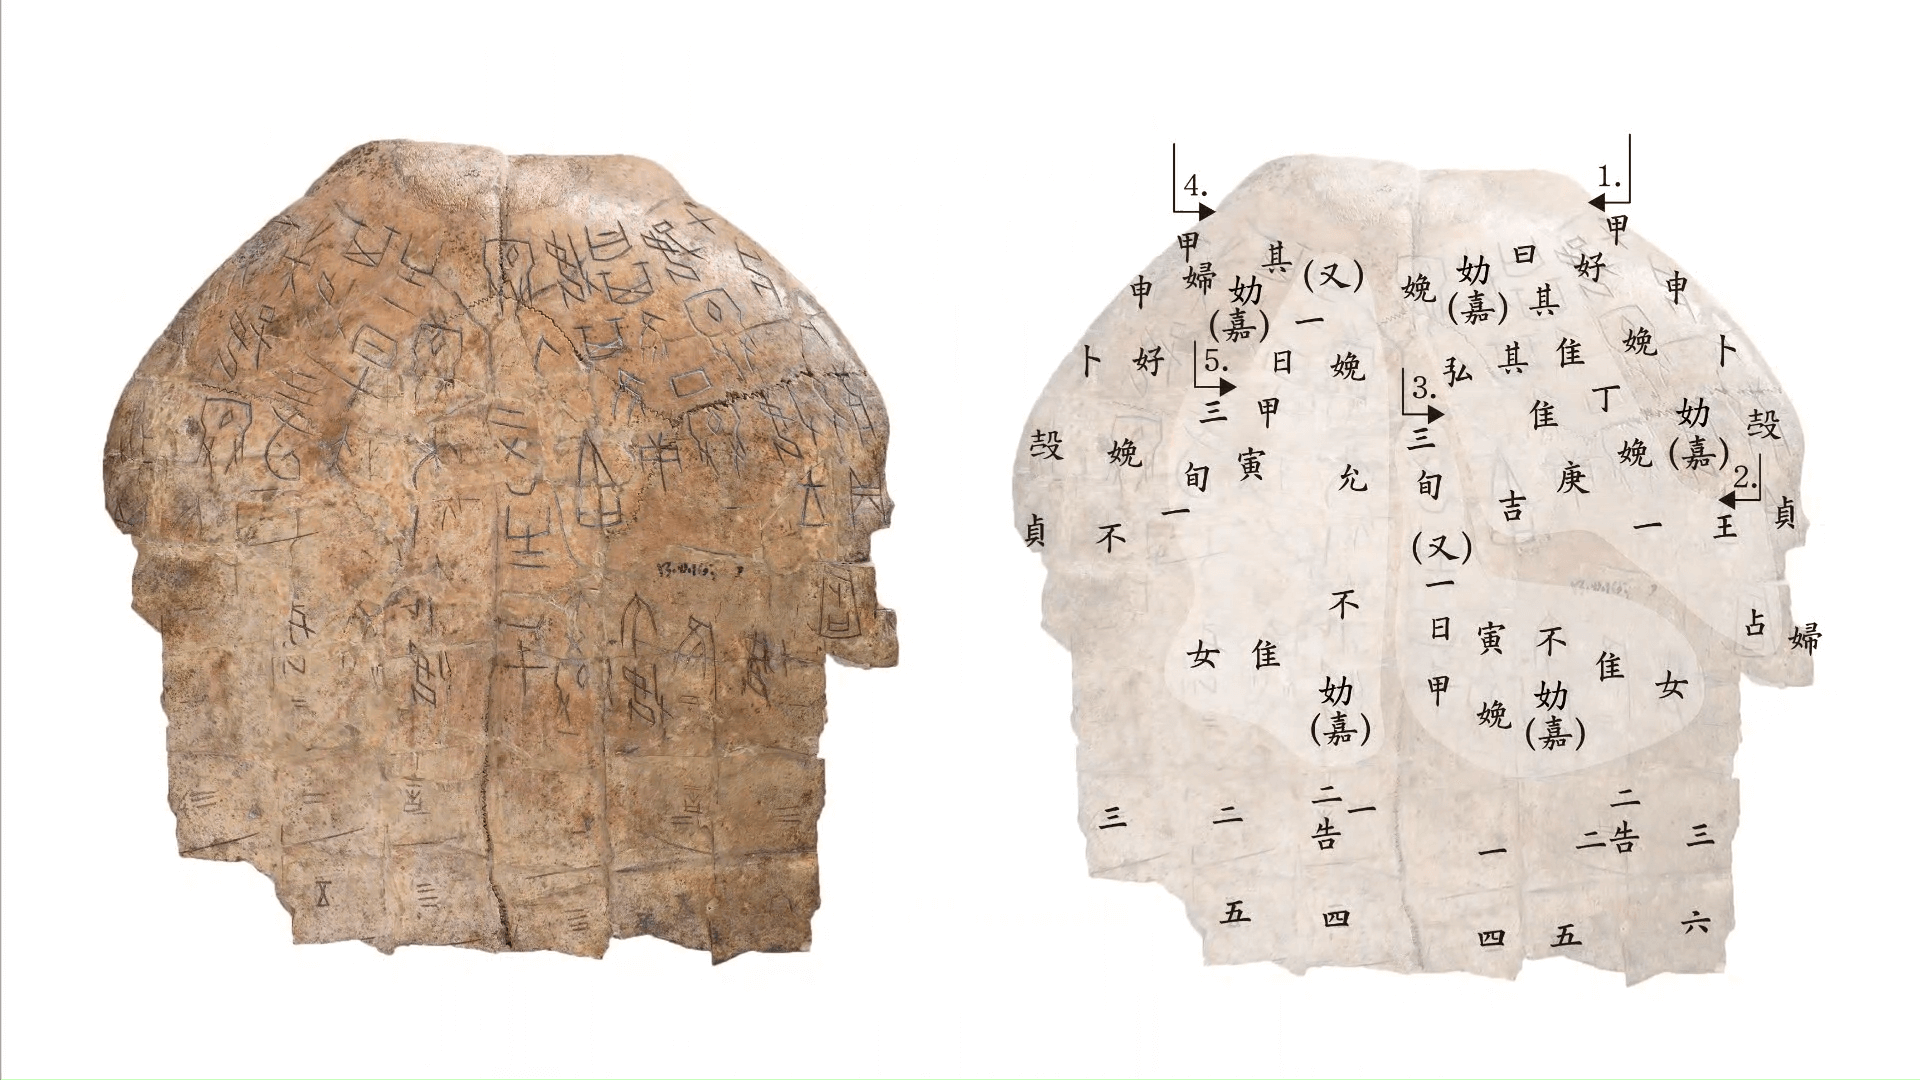 1.
甲申卜㱿貞婦好娩㚰(嘉)
2.
王占曰其隹丁娩㚰(嘉)其隹庚娩弘吉
3.
三旬(又)一日甲寅娩不㚰(嘉)隹女
4.
甲申卜㱿貞婦好娩不其㚰(嘉)
5.
三旬(又)一日甲寅娩允不㚰(嘉)隹女
一
一
三
二
二告
一
五
四
一
二
二告
三
四
五
六